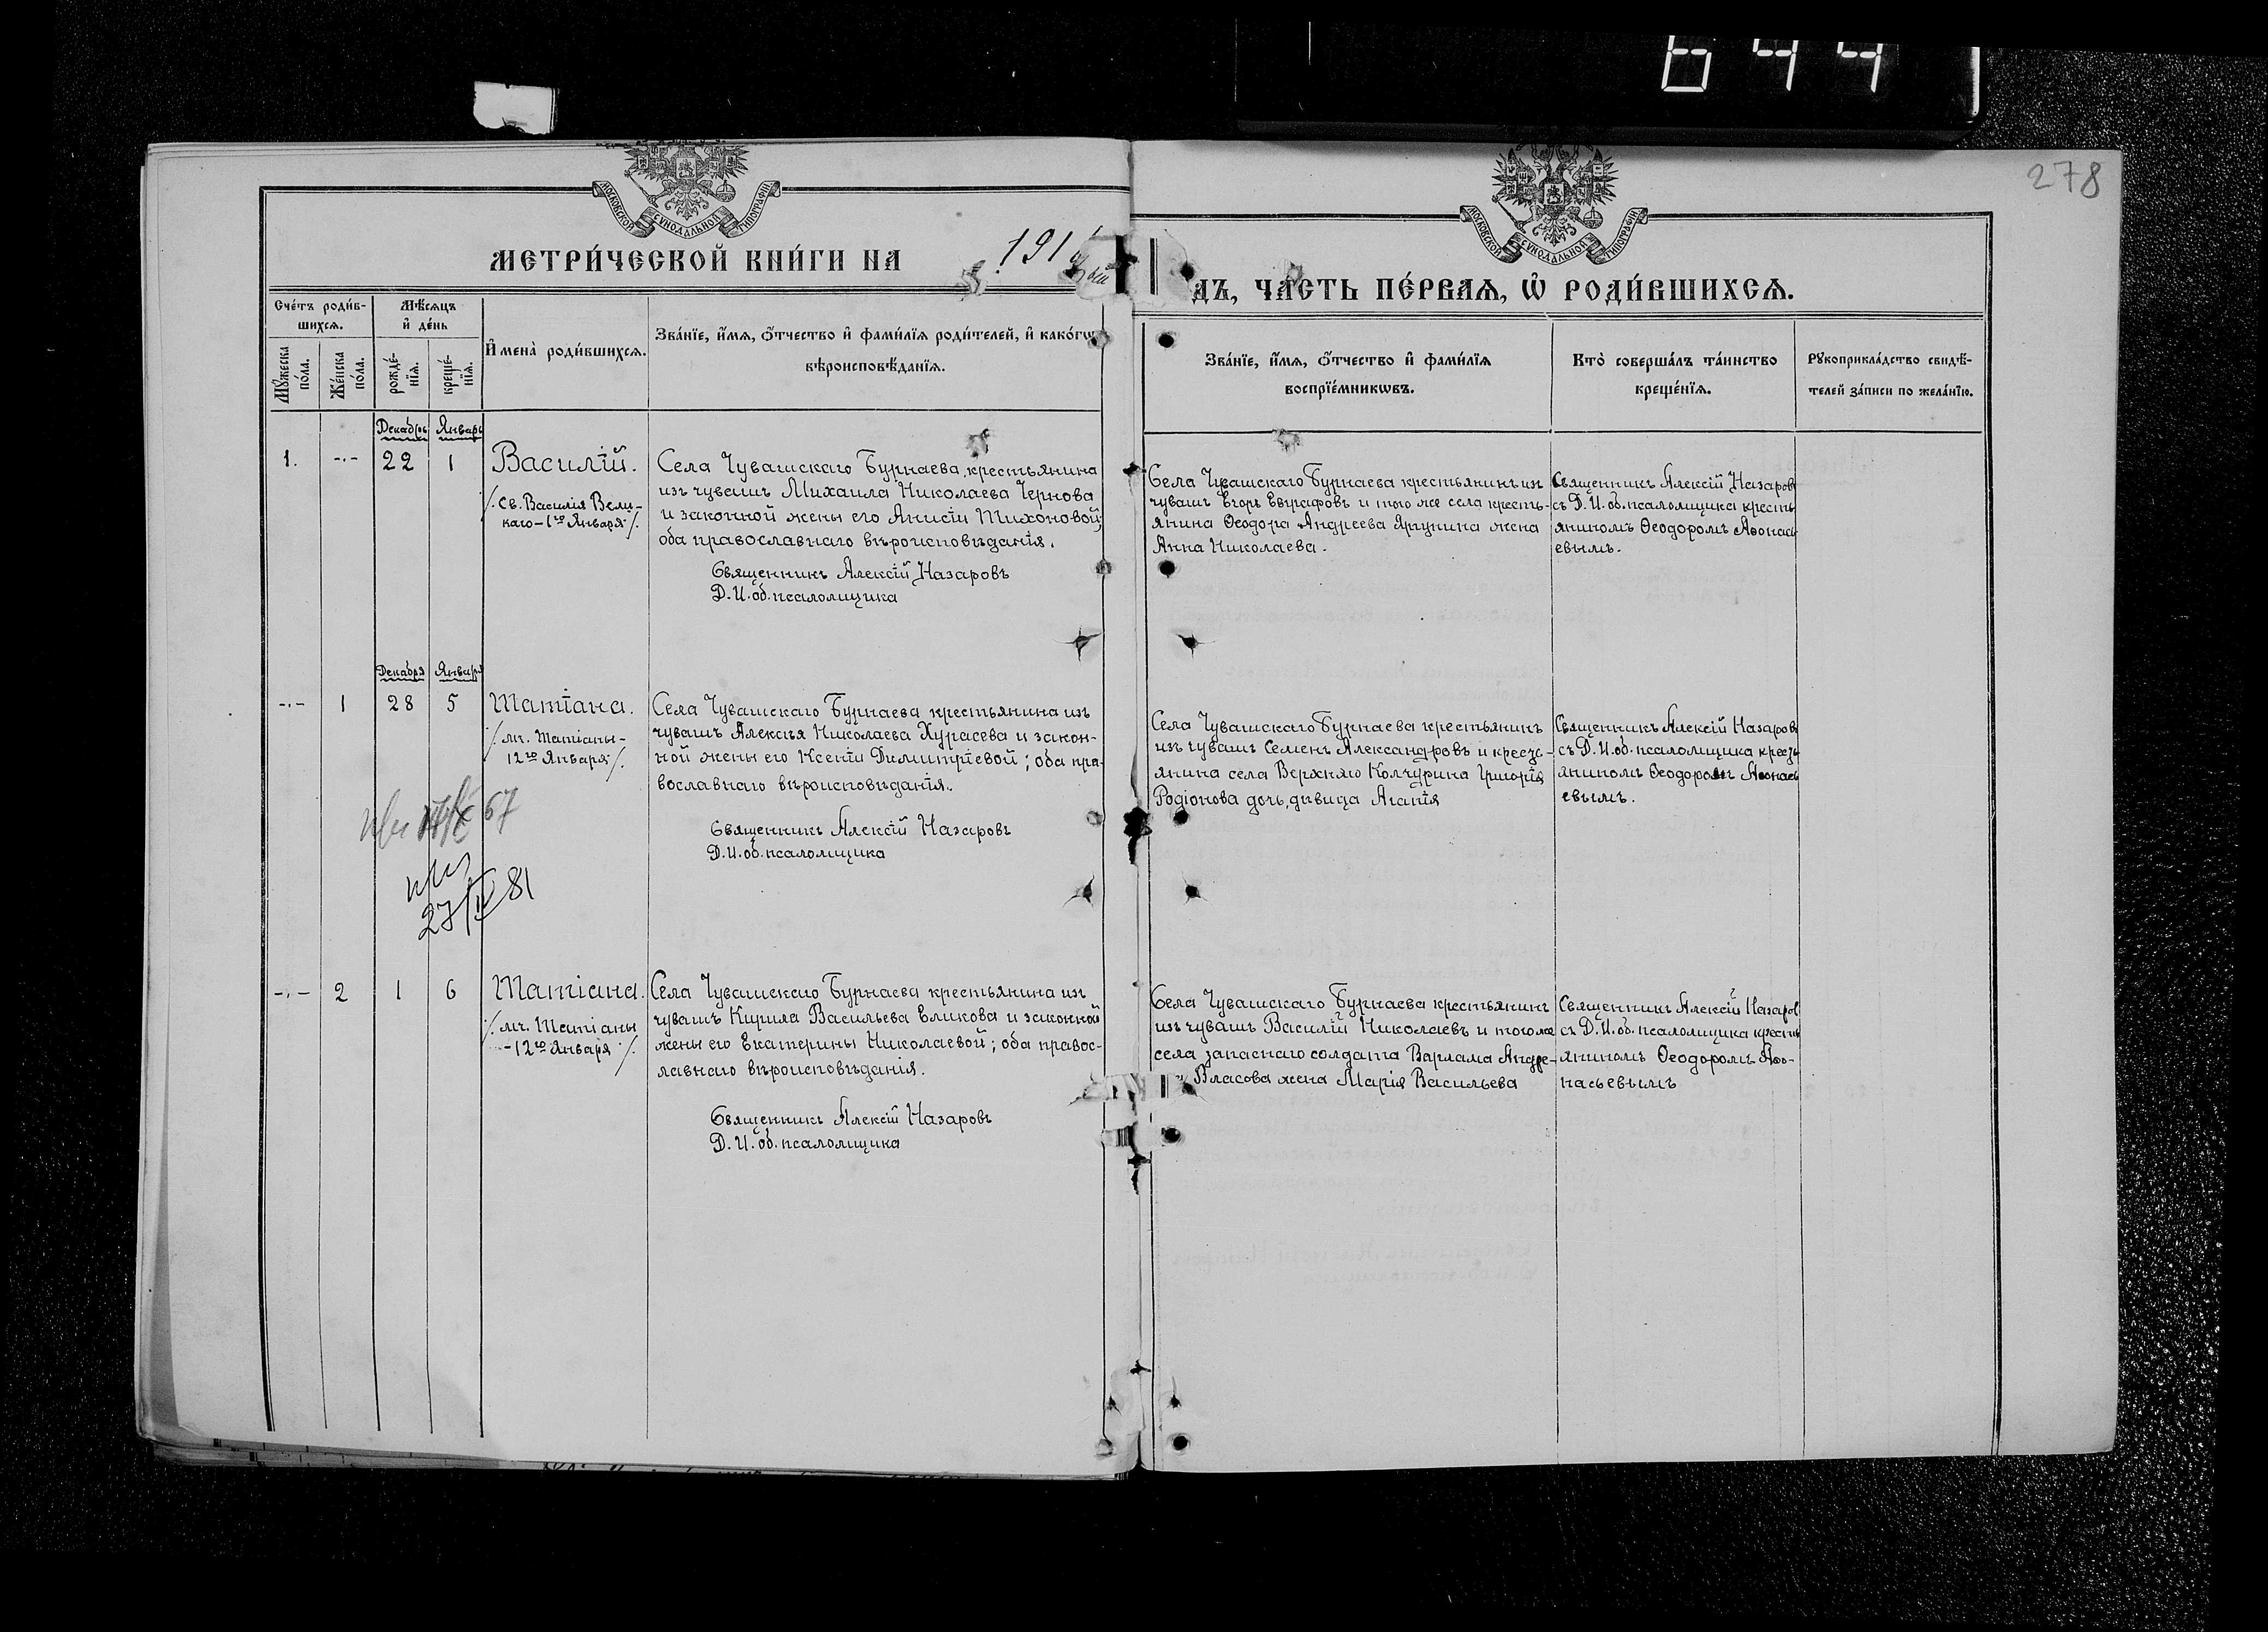 644
278
МОСКОВСКОЙ СѴНОДАЛЬНОЙ ТИПОГРАФІИ
МОСКОВСКОЙ СѴНОДАЛЬНОЙ ТИПОГРАФІИ
МЕТРИ́ЧЕСКОЙ КНИ́ГИ НА 191
ДЪ, ЧА́СТЬ ПЕ́РВАѦ, Ѡ҆ РОДИ́ВШИХСѦ.
Сче́тъ роди́в-
шихсѧ.
Мꙋ́жеска
по́ла.
Же́нска
по́ла.
Мѣ́сѧцъ
и҆ де́нь
рожде́-
нїѧ.
креще́-
нїѧ.
И҆мена̀ роди́вшихсѧ.
Зва́нїе, и҆́мѧ, ѻ҆́тчество и҆ фами́лїѧ роди́телей, и҆ како́гѡ
вѣроисповѣ́данїѧ.
Зва́нїе, и҆́мѧ, ѻ҆́тчество и҆ фами́лїѧ
воспрїе́мникѡвъ.
Кто̀ соверша́лъ та́инство
креще́нїѧ.
Рꙋкоприкла́дство свидѣ́-
телей за́писи по жела́нїю.
Декабрь Январь
1. -·- 22 1 Василій.
/. Св. Василія Вели-
каго – 1го Января /.
Села Чувашскаго Бурнаева, крестьянина
изъ чувашъ Михаила Николаева Чернова
и законной жены его Анисіи Тихоновой;
оба православнаго вѣроисповѣданія.
Священникъ Алексій Назаровъ
Д. И. об. псаломщика
Села Чувашскаго Бурнаева крестьянинъ из
чувашъ Егоръ Евграфовъ и того же села кресть-
янина Ѳеодора Андреева Яргунина жена
Анна Николаева.
Священникъ Алексій Назаровъ
съ Д. И. об. псаломщика кресть
яниномъ Ѳеодоромъ Аѳонась
евымъ.
Декабря Января
-·- 1 28 5 Татіана.
/. мч. Татіаны –
12го Января /.
Села Чувашскаго Бурнаева крестьянина изъ
чувашъ Алексѣя Николаева Хурасева и закон-
ной жены его Ксеніи Димитріевой; оба пра-
вославнаго вѣроисповѣданія.
Священникъ Алексій Назаровъ
Д. И. об. псаломщика
Села Чувашскаго Бурнаева крестьянинъ
изъ чувашъ Семенъ Александровъ и кресть-
янина села Верхняго Колчурина Григорія
Родіонова дочь, дѣвица Агапія
Священникъ Алексій Назаровъ
съ Д. И. об. псаломщика кресть
яниномъ Ѳеодоромъ Аѳонась
евымъ.
67
27/IV 81
-·- 2 1 6 Татіана.
/. мч. Татіаны
– 12го Января /.
Села Чувашскаго Бурнаева крестьянина изъ
чувашъ Кирила Васильева Еликова и законной
жены его Екатерины Николаевой; оба правос-
лавнаго вѣроисповѣданія.
Священникъ Алексій Назаровъ
Д. И. об. псаломщика
Села Чувашскаго Бурнаева крестьянинъ
изъ чувашъ Василій Николаевъ и того же
села запаснаго солдата Варлама Андре-
Власова жена Марія Васильева
Священникъ Алексій Назаров
съ Д. И. об. псаломщика кресть
яниномъ Ѳеодоромъ Аѳо-
насьевымъ